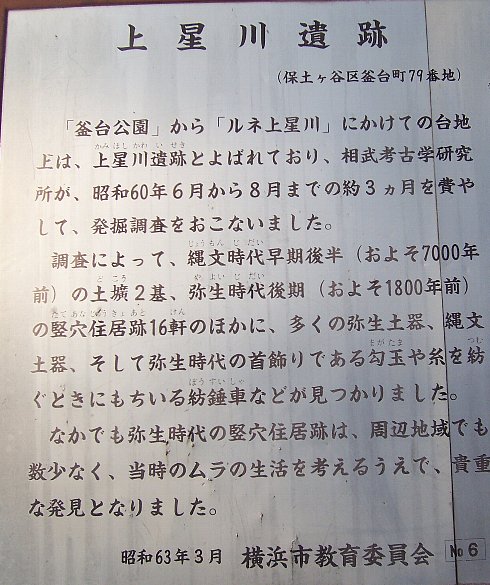 上星川遺跡
(保土ヶ谷区釜台町79番地)
「釜台公園」から「ルネ上星川」にかけての台地
かみほしかわ い せき
上は、上星川遺跡とよばれており、相武考古学研究
所が、昭和60年6月から8月までの約3ヵ月を費や
して、発掘調査をおこないました。
じょうもん じ だい
調査によって、縄文時代早期後半(およそ7000年
ど こう や よい じ だい
前)の土壙2基、弥生時代後期(およそ1800年前)
たて あな じゅう きょ あと けん
の竪穴住居跡16軒のほかに、多くの弥生土器、縄文
まが たま つむ
土器、そして弥生時代の首飾りである勾玉や糸を紡
ぼう すい しゃ
ぐときにもちいる紡錘車などが見つかりました。
なかでも弥生時代の竪穴住居跡は、周辺地域でも
数少なく、当時のムラの生活を考えるうえで、貴重
な発見となりました。
昭和63年3月 横浜市教育委員会 No6